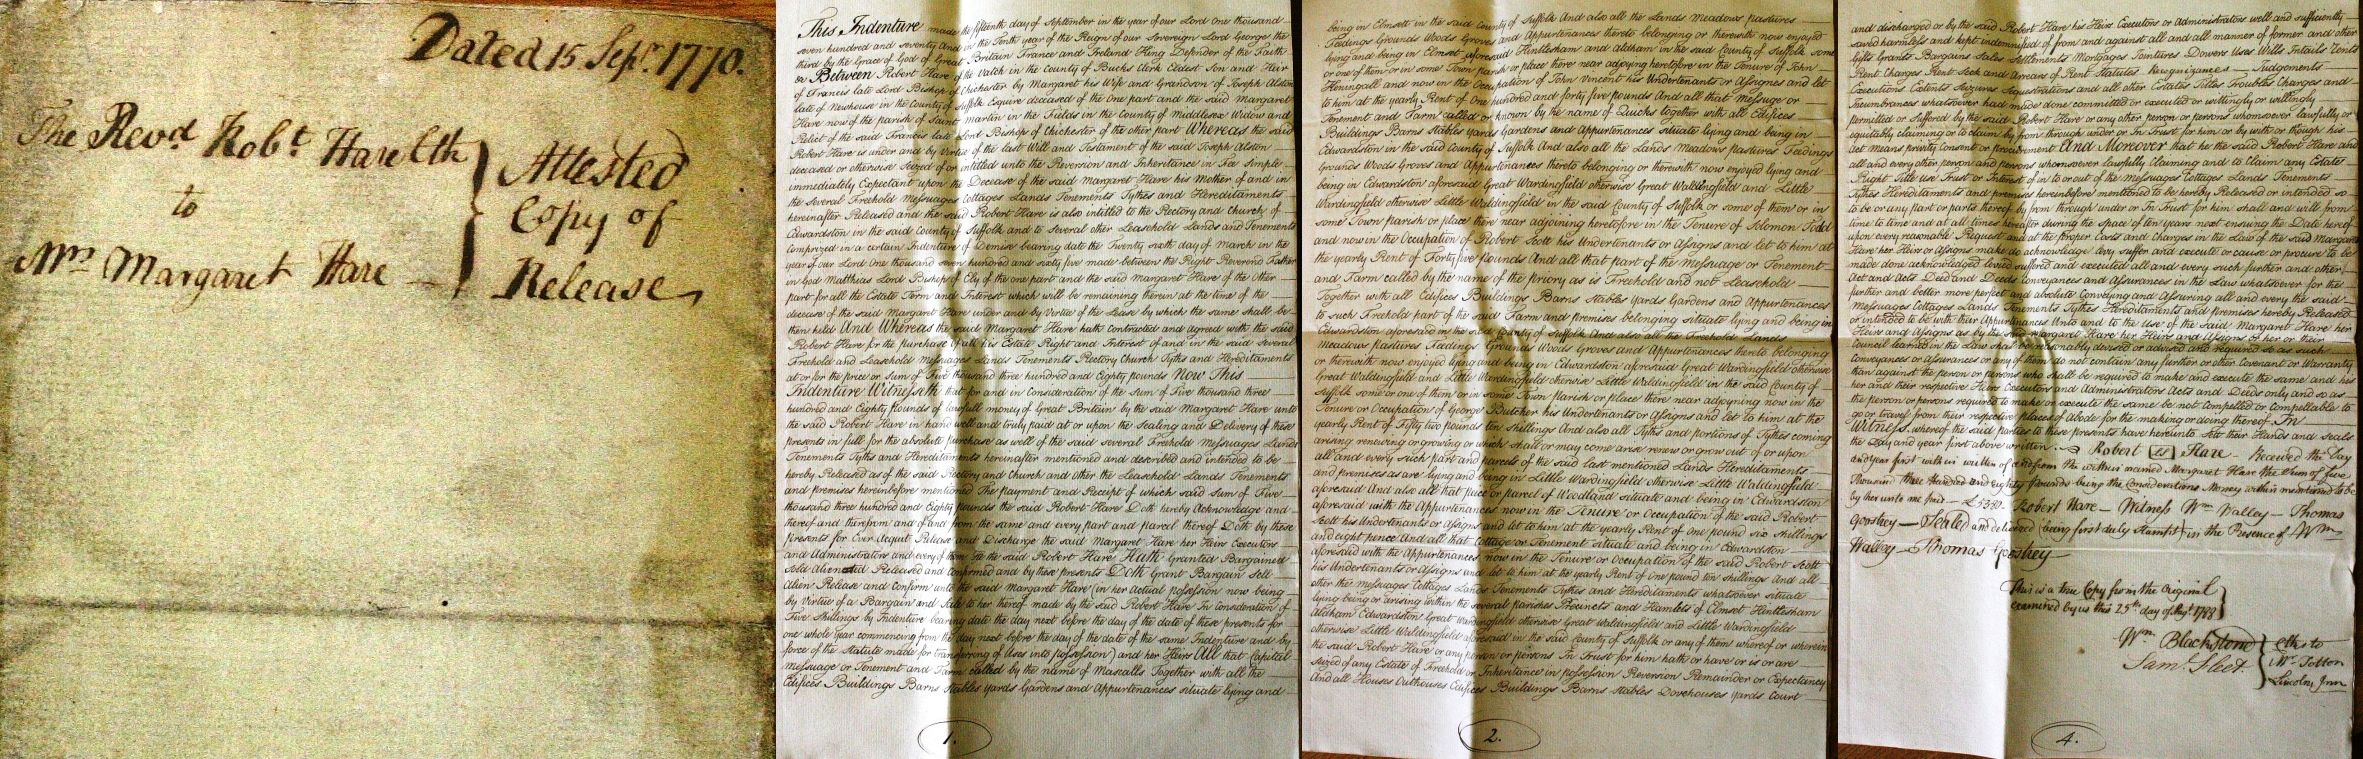 Dated 15 Sepr. 1770.
The Revd. Robt. Hare Clk
to
Mrs Margaret Hare
Attested
Copy of
Release
This Indenture made the fifteenth day of September in the year of our Lord One thousand
seven hundred and seventy And in the Tenth year of the Reign of our Sovereign Lord George the
third by the Grace of God of Great Britain France and Ireland King Defender of the Faith
&c Between Robert Hare of the Vatch in the County of Bucks Clerk Eldest Son and Heir
of Francis late Lord Bishop of Chichester by Margaret his Wife and Grandson of Joseph Alston
late of Newhouse in the County of Suffolk Esquire deceased of the One part and the said Margaret
Hare now of the parish of Saint Martin in the Fields in the County of Middlesex Widow and
Relict of the said Francis late Lord Bishop of Chichester of the other part Whereas the said
Robert Hare is under and by Virtue of the last Will and Testament of the said Joseph Alston
deceased or otherwise Seized of or intitled unto the Reversion and Inheritance in Fee Simple
immediately Expectant upon the Decease of the said Margaret Hare his Mother of and in
the several Freehold Messuages Cottages Lands Tenements Tythes and Hereditaments
hereinafter Released and the said Robert Hare is also intitled to the Rectory and Church of
Edwardston in the said County of Suffolk and to several other Leasehold Lands and Tenements
Comprized in a certain Indenture of Demise bearing date the Twenty sixth day of March in the
year of our Lord One thousand seven hundred and sixty five made between the Right Reverend Father
in God Matthias Lord Bishop of Ely of the one part and the said Margaret Hare of the Other
part for all the Estate Term and Interest which will be remaining therein at the time of the
decease of the said Margaret Hare under and by Virtue of the Lease by which the same shall be
then held And Whereas the said Margaret Hare hath Contracted and agreed with the said
Robert Hare for the purchase of all his Estate Right and Interest of and in the said several
Freehold and Leasehold Messuages Lands Tenements Rectory Church Tyths and Hereditaments
at or for the price or Sum of Five thousand three hundred and Eighty pounds Now This
Indenture Witnesseth that for and in Consideration of the Sum of Five thousand three
hundred and Eighty Pounds of lawfull money of Great Britain by the said Margaret Hare unto
the said Robert Hare in hand well and truly paid at or upon the Sealing and Delivery of these
presents in full for the absolute purchase as well of the said several Freehold Messuages Lands
Tenements Tyths and Hereditaments hereinafter mentioned and described and intended to be
hereby Released as of the said Rectory and Church and other the Leasehold Lands Tenements
and premises hereinbefore mentioned The payment and Receipt of which said Sum of Five
thousand three hundred and Eighty pounds the said Robert Hare Doth hereby Acknowledge and
thereof and therefrom and of and from the same and every part and parcel thereof Doth by these
presents for Ever Acquit Release and Discharge the said Margaret Hare her Heirs Executors
and Administrators and every of them He the said Robert Hare Hath Granted Bargained
Sold Aliened Released and Confirmed and by these presents Doth Grant Bargain Sell
Alien Release and Confirm unto the said Margaret Hare (in her actual possession now being
by Virtue of a Bargain and Sale to her thereof made by the said Robert Hare In Consideration of
Five Shillings by Indenture bearing date the day next before the day of the date of these presents for
one whole year commencing from the day next before the day of the date of the same Indenture and by
force of the Statute made for transferring of Uses into possession) and her Heirs All that Capital
Messuage or Tenement and Farm called by the name of Mascalls Together with all the
Edifices Buildings Barns Stables Yards Gardens and Appurtenances situate lying and
1.
being in Elmsett in the said County of Suffolk And also all the Lands Meadows pastures
Feedings Grounds Woods Groves and Appurtenances thereto belonging or therewith now enjoyed
lying and being in Elmset aforesaid Hintlesham and Aldham in the said County of Suffolk some
or one of them or in some Town parish or place there near adjoying heretofore in the Tenure of John
Heningall and now in the Occupation of John Vincent his Undertenants or Assignes and let
to him at the yearly Rent of One hundred and forty five pounds And all that Messuage or
Tenement and Farm called or known by the name of Quicks together with all Edifices
Buildings Barns Stables Yards Gardens and Appurtenances situate lying and being in
Edwardston in the said County of Suffolk And also all the Lands Meadows pastures Feedings
Grounds Woods Groves and Appurtenances thereto belonging or therewith now enjoyed lying and
being in Edwardston aforesaid Great Wardingfield otherwise Great Waldingfield and Little
Wardingfield otherwise Little Waldingfield in the said County of Suffolk or some of them or in
some Town parish or place there near adjoining heretofore in the Tenure of Solomon Todd
and now in the Occupation of Robert Scott his Undertenants or Assigns and let to him at
the yearly Rent of Forty five pounds And all that part of the Messuage or Tenement
and Farm called by the name of the priory as is Freehold and not Leasehold
Together with all Edifices Buildings Barns Stables Yards Gardens and Appurtenances
to such Freehold part of the said Farm and premises belonging situate lying and being in
Edwardston aforesaid in the said County of Suffolk And also all the Freehold Lands
Meadows pastures Feedings Grounds Woods Groves and Appurtenances thereto belonging
or therewith now enjoyed lying and being in Edwardston aforesaid Great Wardingfield otherwise
Great Waldingfield and Little Wardingfield otherwise Little Waldingfield in the said County of
Suffolk some or one of them or in some Town parish or place there near adjoyning now in the
Tenure or Occupation of George Butcher his Undertenants or Assigns and let to him at the
yearly Rent of Fifty two pounds ten shillings And also all Tyths and portions of Tythes coming
arising renewing or growing or which shall or may come arise renew or grow out of or upon
all and every such part and parcels of the said last mentioned Lands Hereditaments
and premises as are lying and being in Little Wardingfield otherwise Little Waldingfield
aforesaid And also all that piece or parcel of Woodland situate and being in Edwardston
aforesaid with the Appurtenances now in the Tenure or Occupation of the said Robert
Scott his Undertenants or Assigns and let to him at the yearly Rent of One pound six shillings
and eight pence And all that Cottage or Tenement situate and being in Edwardston
aforesaid with the Appurtenances now in the Tenure or Occupation of the said Robert Scott
his Undertenants or Assigns and let to him at the yearly Rent of one pound ten shillings And all
other the Messuages Cottages Lands Tenements Tythes and Hereditaments whatsoever situate
lying being or arising within the several parishes Precincts and Hamlets of Elmset Hintlesham
Aldham Edwardston Great Wardingfield otherwise Great Waldingfield and Little Wardingfield
otherwise Little Waldingfield aforesaid in the said County of Suffolk or any of them whereof or wherein
the said Robert Hare or any person or persons In Trust for him hath or have or is or are
seized of any Estate of Freehold or Inheritance in possession Reversion Remainder or Expectancy
And all Houses Outhouses Edifices Buildings Barns Stables Dovehouses Yards Court
2.
and discharged or by the said Robert Hare his Heirs Executors or Administrators well and sufficiently
saved harmless and kept indemnified of from and against all and all manner of former and other
Gifts Grants Bargains Sales Settlements Mortgages Jointures Dowers Uses Wills Intails Rents
Rent Charges Rent Seck and Arrears of Rent Statutes Recognizances Judgements
Executions Extents Seizures Sequestrations and all other Estates Titles Troubles Charges and
Incumbrances whatsoever had made done committed or executed or wittingly or willingly
permitted or suffered by the said Robert Hare or any other person or persons whomsoever lawfully or
equitably claiming or to claim by from through under or In Trust for him or by with or though his
Act means privity Consent or procurement And Moreover that he the said Robert Hare and
all and every other person and persons whomsoever lawfully Claiming and to Claim any Estate
Right Title Use Trust or Interest of in to or out of the Messuages Cottages Lands Tenements
Tythes Hereditaments and premises hereinbefore mentioned to be hereby Released or intended so
to be or any part or parts thereof by from through under or In Trust for him shall and will from
time to time and at all times hereafter during the space of ten years next ensuing the Date hereof
upon every reasonable Request and at the proper Costs and Charges in the Law of the said Margaret
Hare her Heirs or Assigns make do acknowledge levy suffer and execute or cause or procure to be
made done acknowledged levied suffered and executed all and every such further and other
Act and Acts Deed and Deeds Conveyances and Assurances in the Law whatsoever for the
further and better more perfect and absolute Conveying and Assuring all and every the said
Messuages Cottages Lands Tenements Tythes Hereditaments and premises hereby Released
or intended to be with their Appurtenances Unto and to the Use of the said Margaret Hare her
Heirs and Assigns as by the said Margaret Hare her Heirs and Assigns or her or their
Council learned in the Law shall be reasonably devised or advised and required so as such
Conveyances or Assurances or any of them do not contain any further or other Covenant or Warranty
than against the person or persons who shall be required to make and execute the same and his
her and their respective Heirs Executors and Administrators Acts and Deeds only and so as
the person or persons required to make or execute the same be not Compelled or Compellable to
go or travel from their respective places of Abode for the making or doing thereof In
Witness whereof the said parties to these presents have hereunto Sett their Hands and Seals
the Day and year first above written. Robert LS Hare Received the Day
and year first within written of and from the within named Margaret Hare the Sum of Five
Thousand Three Hundred and eighty Pounds being the Consideration Money within mentioned to be
by her unto me paid £5380. Robert Hare Witness Wm Walley Thomas
Gooshey Sealed and delivered (being first duly Stampt) in the Presence of Wm
Walley Thomas Gooshey
This is a true Copy from the Original
examined by us this 25th day of Augt 1788
Wm Blackstone
Saml Fleet
Clks to
Mr.
Lincolns Inn
4.